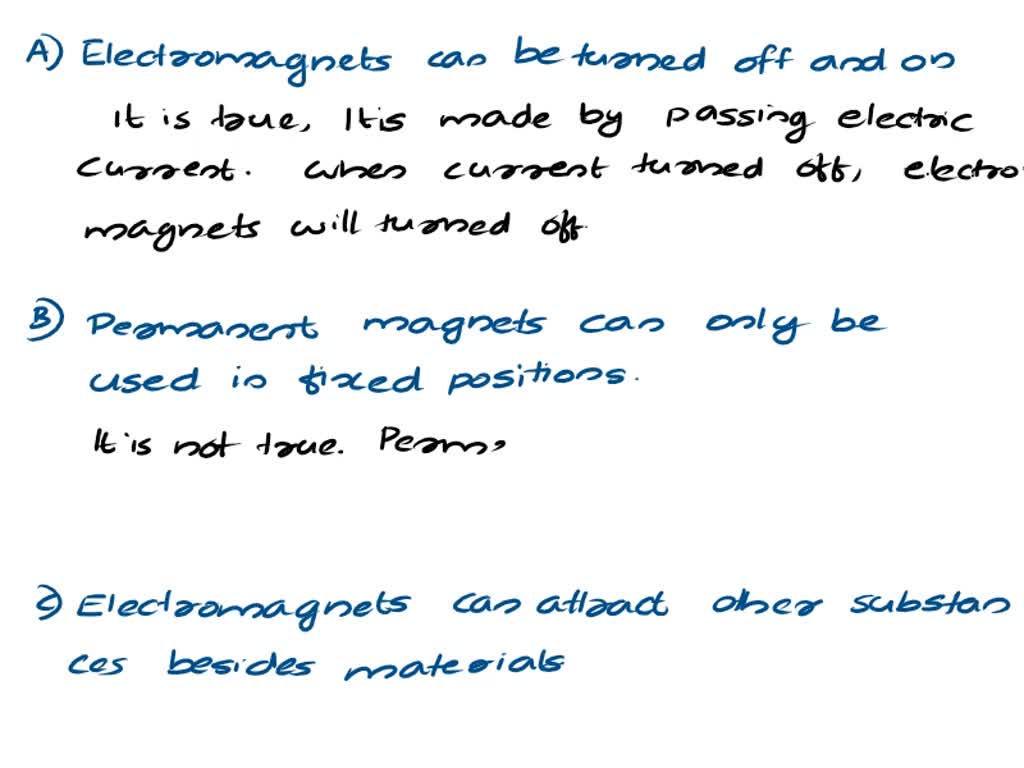 A) Electromagnets can be turned off and on
It is true, It is made by passing electric
current. when current turned off, electro
magnets will turned off
B) Permanent magnets can only be
used in fixed positions.
It is not true. Perm
C) Electromagnets can attract other substan
ces besides materials